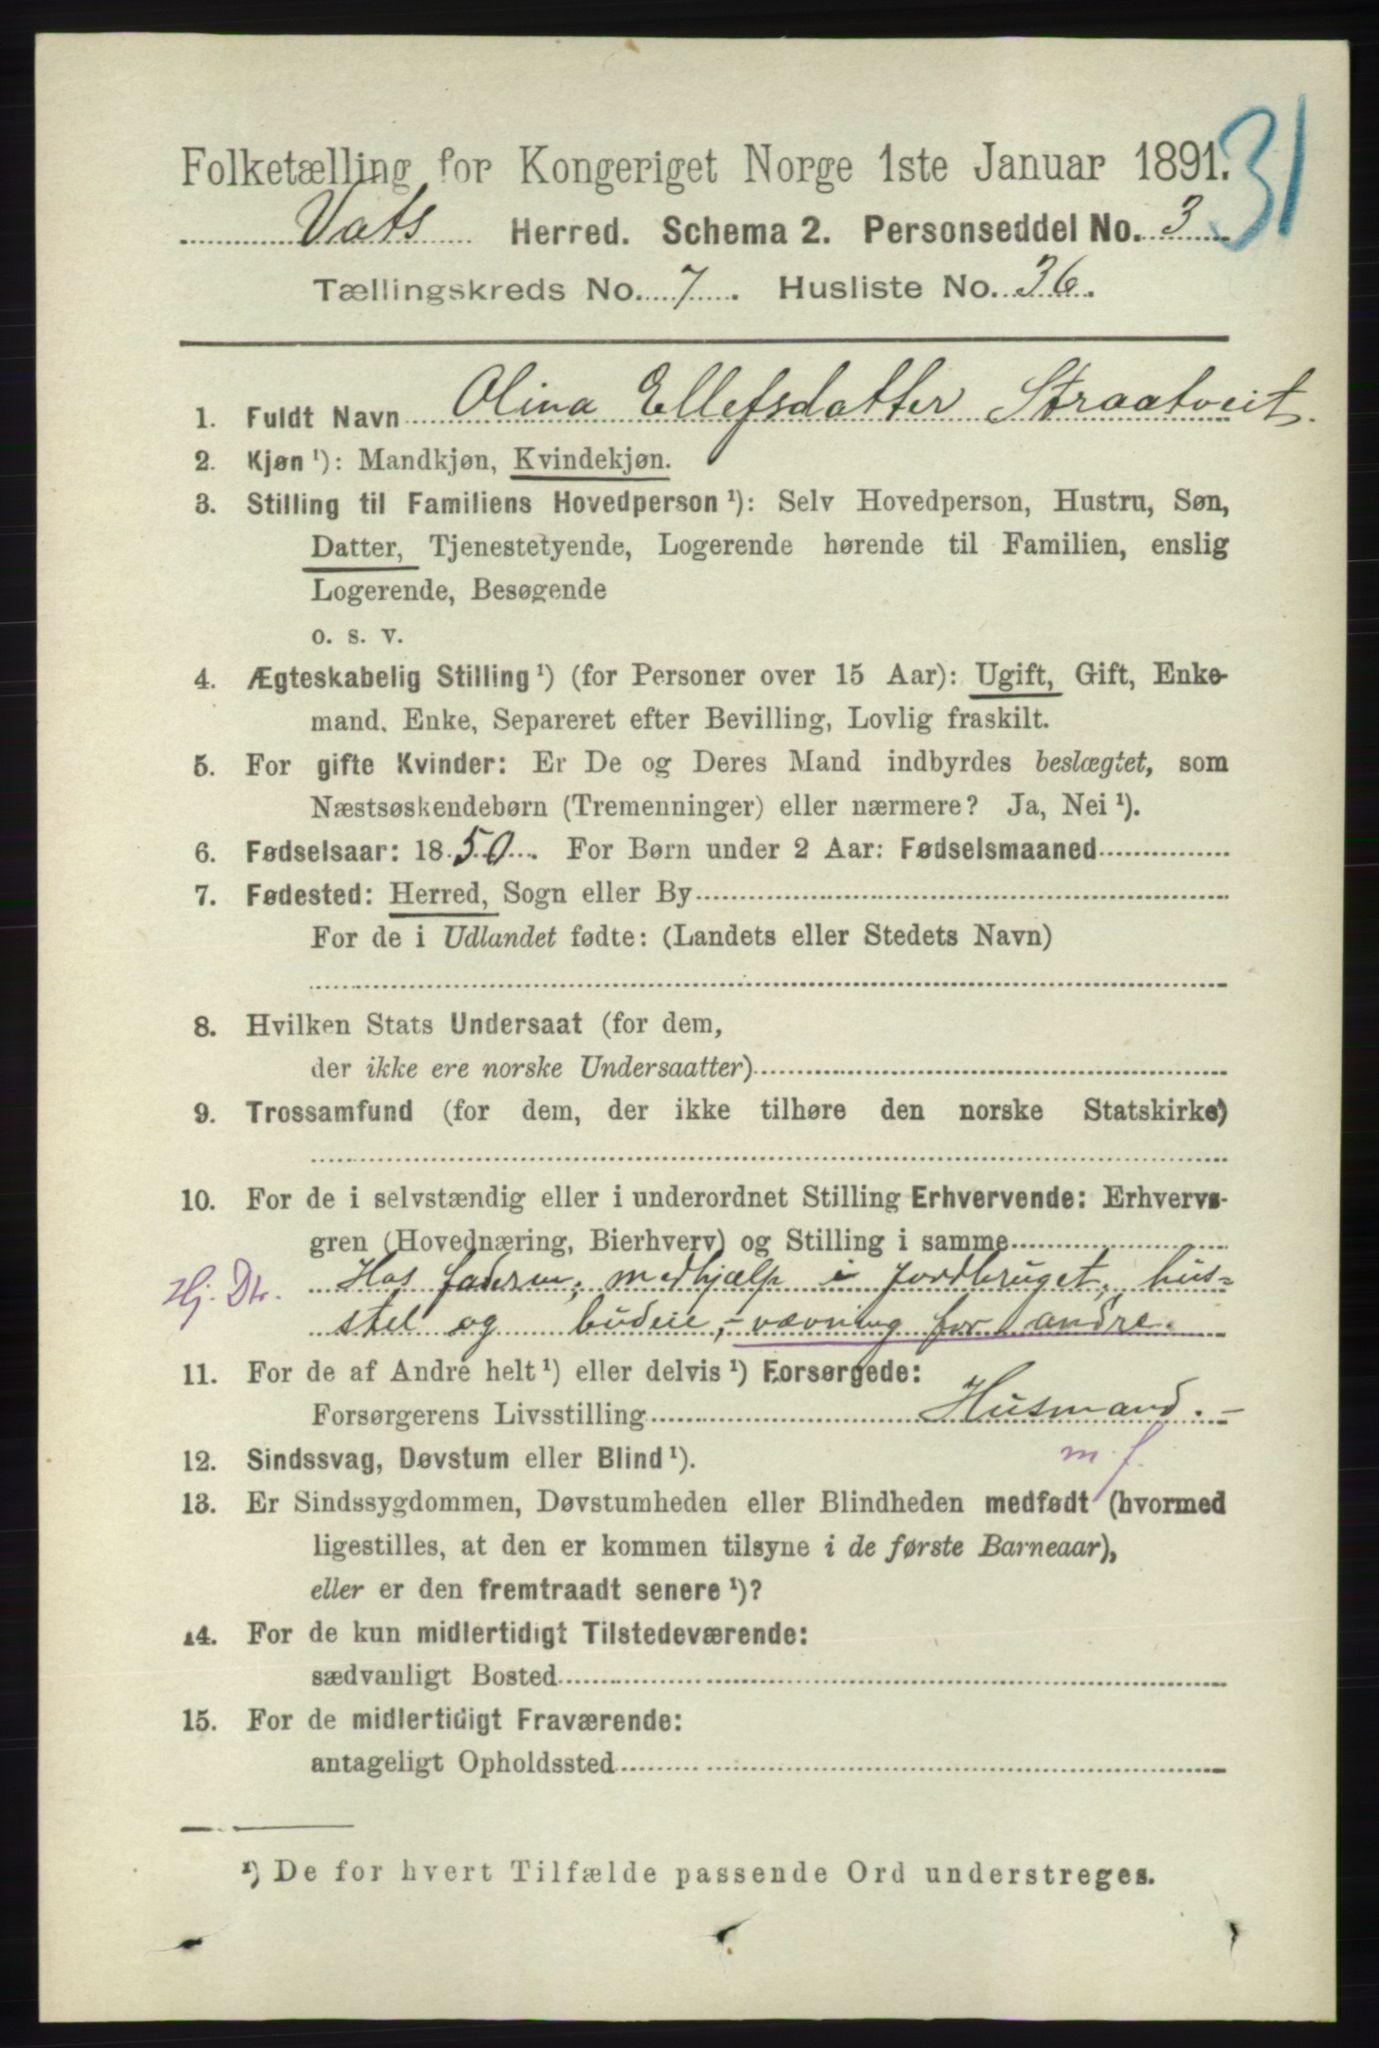 31
Folketælling for Kongeriget Norge 1ste Januar 1891.
Vats Herred. Schema 2. Personseddel No. 3
Tællingskreds No. 7. Husliste No. 36.
1. Fuldt Navn Olina Ellefsdatter Straatveit.
2. Kjøn ¹): Mandkjøn, Kvindekjøn.
3. Stilling til Familiens Hovedperson ¹): Selv Hovedperson, Hustru, Søn,
Datter, Tjenestetyende, Logerende hørende til Familien, enslig
Logerende, Besøgende
o. s. v.
4. Ægteskabelig Stilling ¹) (for Personer over 15 Aar): Ugift, Gift, Enke-
mand, Enke, Separeret efter Bevilling, Lovlig fraskilt.
5. For gifte Kvinder: Er De og Deres Mand indbyrdes beslægtet, som
Næstsøskendebørn (Tremenninger) eller nærmere? Ja, Nei ¹).
6. Fødselsaar: 1850. For Børn under 2 Aar: Fødselsmaaned
7. Fødested: Herred, Sogn eller By
For de i Udlandet fødte: (Landets eller Stedets Navn)
8. Hvilken Stats Undersaat (for dem,
der ikke ere norske Undersaatter)
9. Trossamfund (for dem, der ikke tilhøre den norske Statskirke)
10. For de i selvstændig eller i underordnet Stilling Erhvervende: Erhvervs-
gren (Hovednæring, Bierhverv) og Stilling i samme
Hj. Dtr. Hos faderen; medhjælp i jordbruget, hus-
stel og budeie, – vævning for andre.
11. For de af Andre helt ¹) eller delvis ¹) Forsørgede:
Forsørgerens Livsstilling Husmand. –
m. j.
12. Sindssvag, Døvstum eller Blind ¹).
13. Er Sindssygdommen, Døvstumheden eller Blindheden medfødt (hvormed
ligestilles, at den er kommen tilsyne i de første Barneaar),
eller er den fremtraadt senere ¹)?
14. For de kun midlertidigt Tilstedeværende:
sædvanligt Bosted
15. For de midlertidigt Fraværende:
antageligt Opholdssted
¹) De for hvert Tilfælde passende Ord understreges.